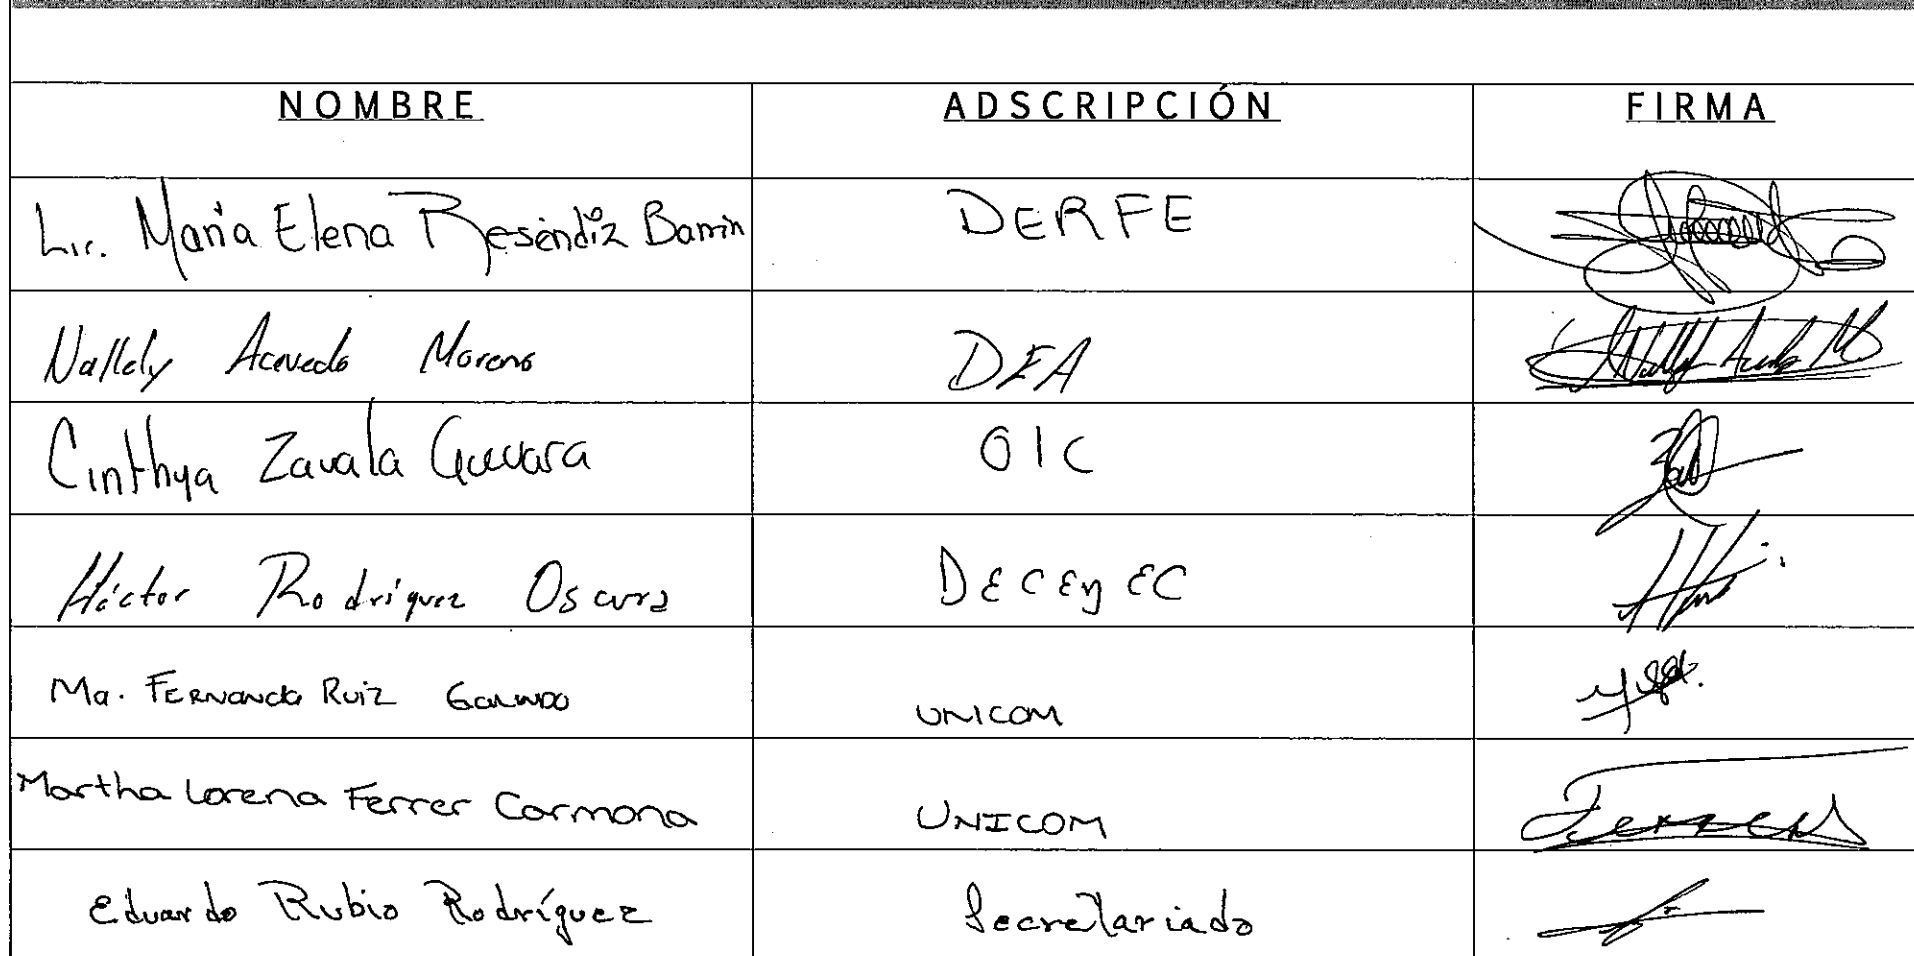 NOMBRE ADSCRIPCIÓN FIRMA
Lic. María Elena Reséndiz DERFE
Nallely Acevedo Moreno DEA
Cinthya Zavala Guevara OIC
Héctor Rodríguez Oscura DECEyEC
Ma. FERNANDA RUIZ GALINDO UNICOM
Martha Lorena Ferrer Carmona UNICOM Ferrer
Eduardo Rubio Rodríguez Secretariado